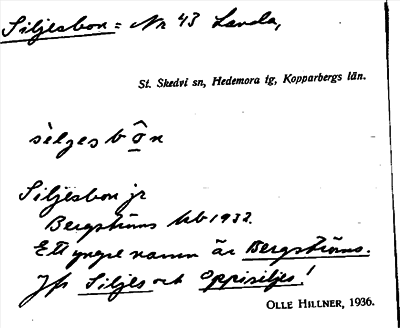 Siljesbon = Nr 43 Landa,
St. Skedvi sn, Hedemora tg, Kopparbergs län.
sèljesbôn
Siljesbon jr
Bergströms kb 1932.
Ett yngre namn är Bergströms.
Jfr Siljes och Oppisiljes!
OLLE HILLNER, 1936.